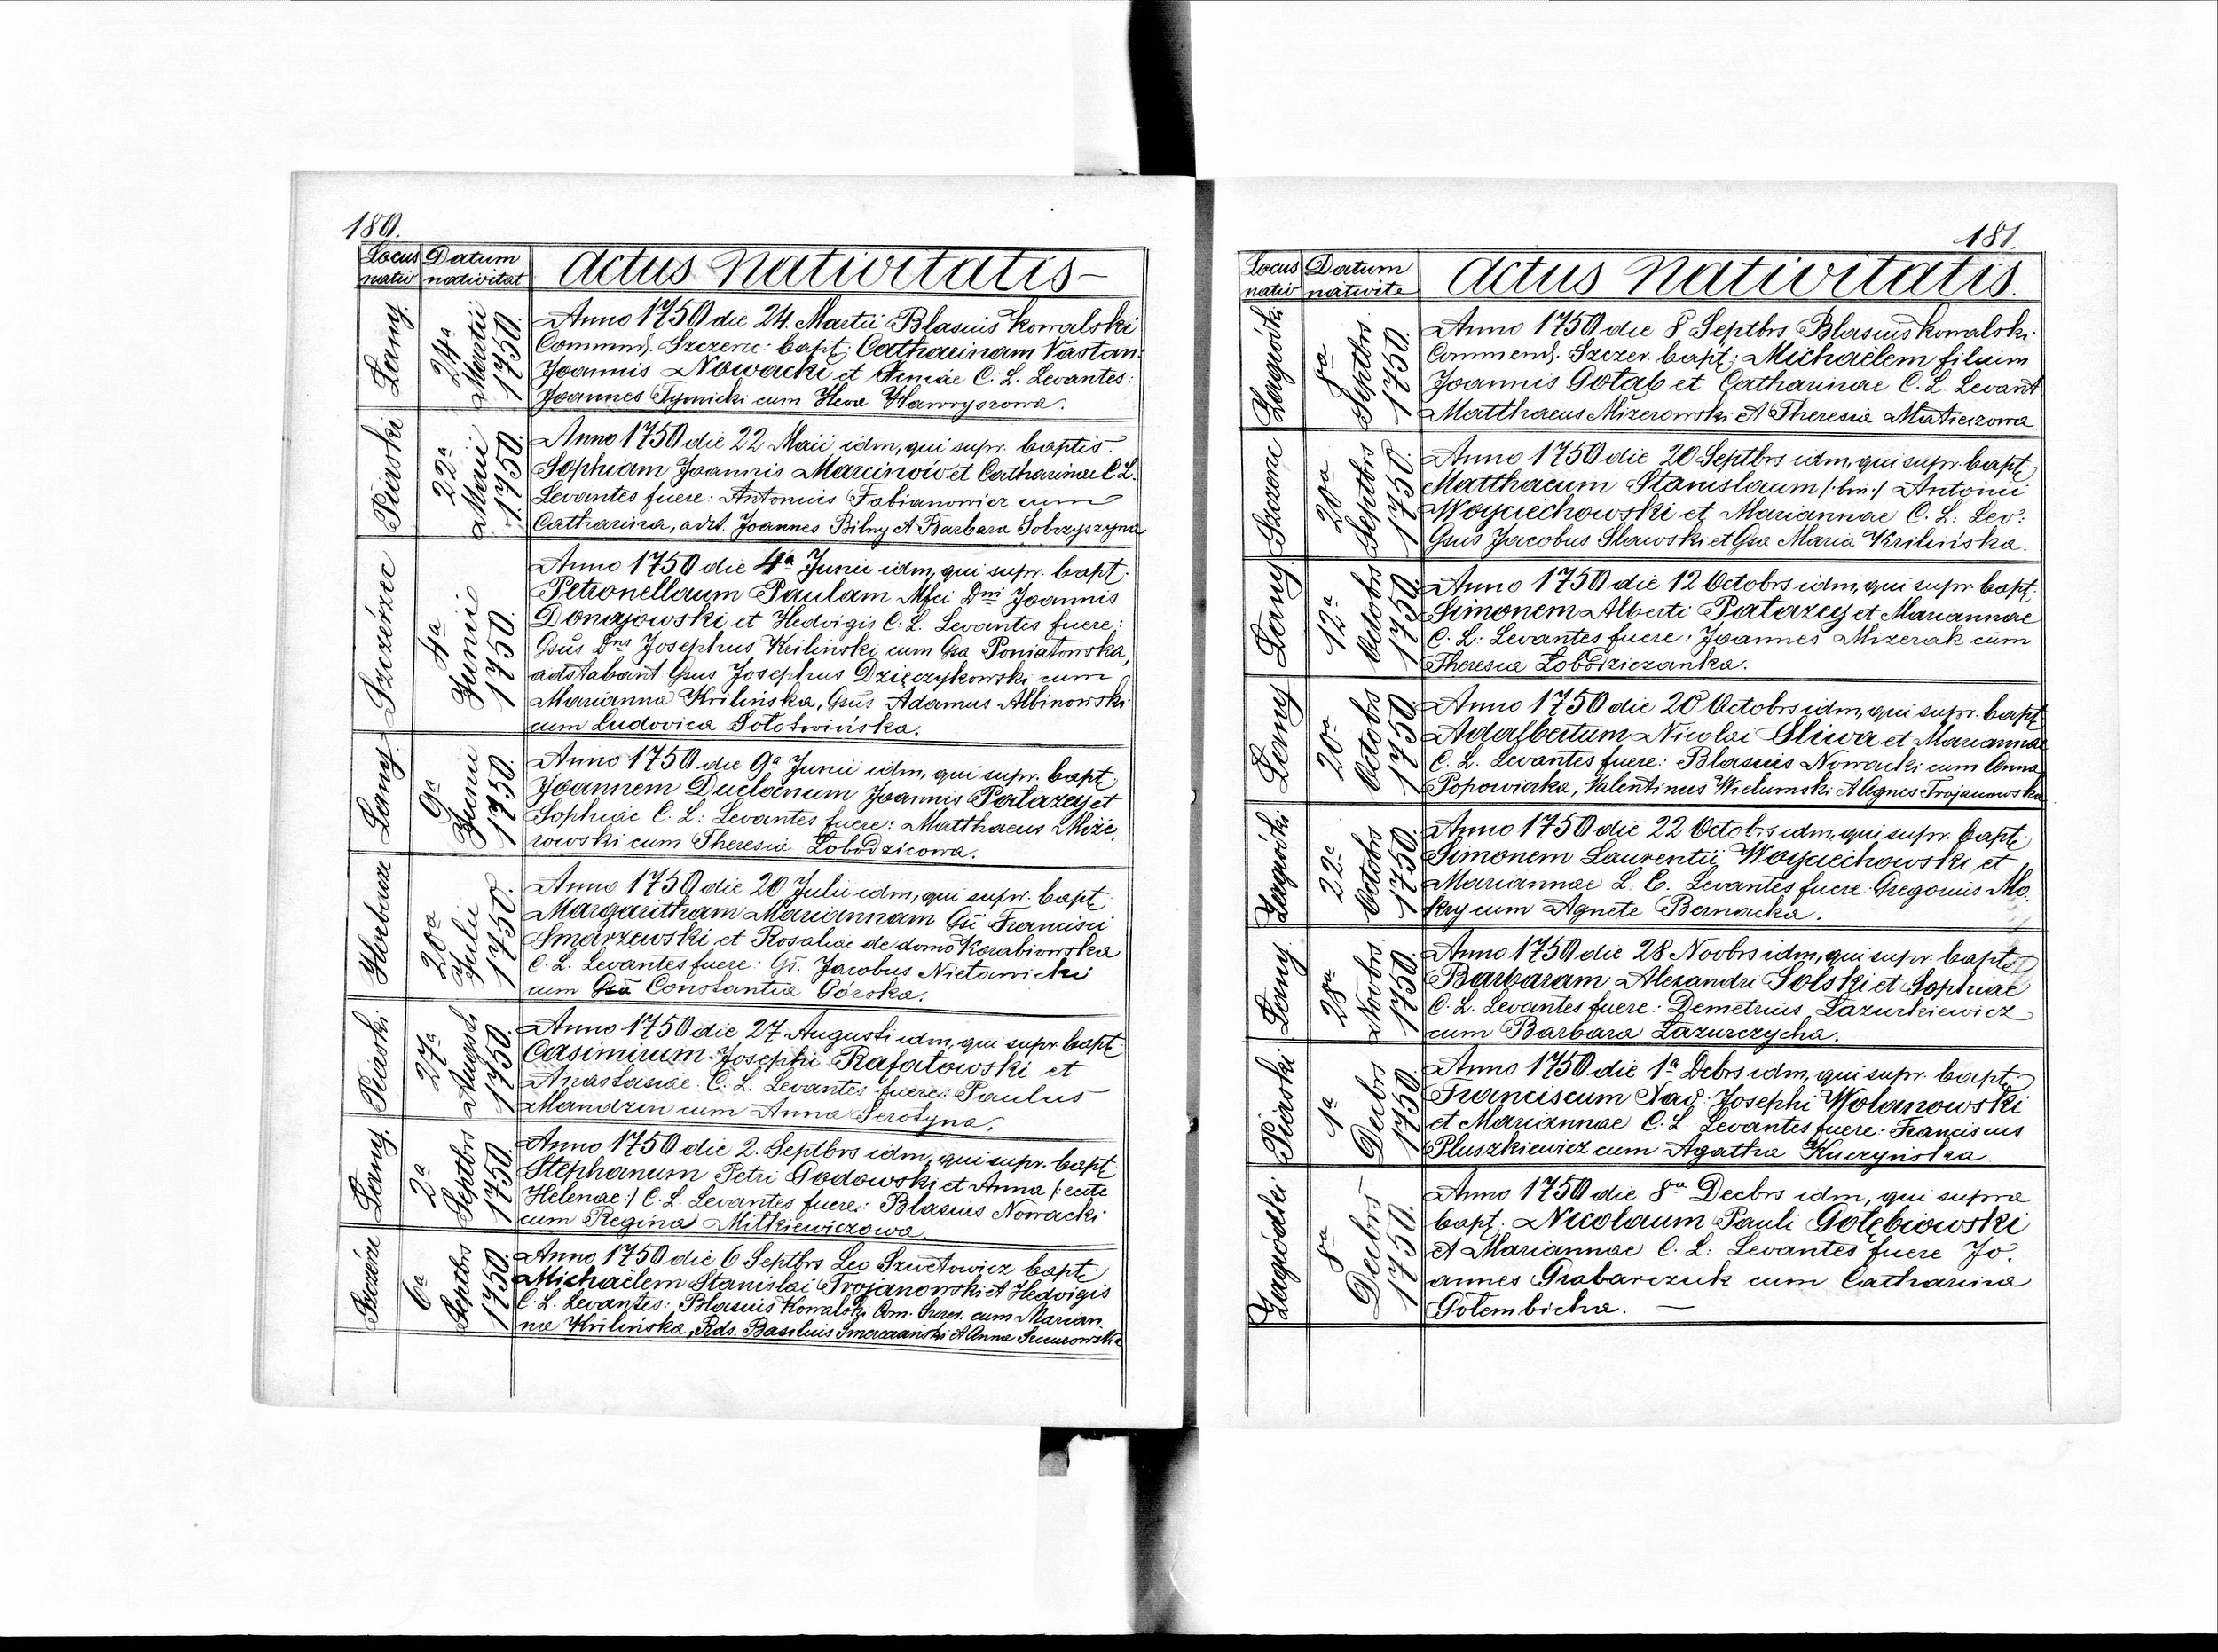 180.
Locus nativ
Datum nativitat
Actus Nativitatis
Łany.
24a Martii 1750.
Anno 1750 die 24. Martii Blasius Kowalski
Commend. Szczerec: bapt: Catharinam Vastan:
Joannis Nowacki et Annae C. L. Levantes:
Joannes Tymicki cum Heva Hawryszowa.
Piaski
22a Maii 1750.
Anno 1750 die 22 Maii idm, qui supr. baptis.
Sophiam Joannis Marcinów et Catharinae C. L.
Levantes fuere: Antonius Fabianowicz cum
Catharina, adst. Joannes Bilny et Barbara Sobczyszyna
Szczérzec
4a Junii 1750.
Anno 1750 die 4a Junii idm, qui supr. bapt.
Petronellam Paulam Mfci Dni Joannis
Donajowski et Hedvigis C. L. Levantes fuere:
Gsus Dns Josephus Kriliński cum Gsa Poniatowska,
adstabant Gsus Josephus Dzięczykowski cum
Marianna Krilińska, Gsus Adamus Albinowski
cum Ludovica Sołotwińska.
Łany.
9a Junii 1750.
Anno 1750 die 9a Junii idm, qui supr. bapt.
Joannem Duclanum Joannis Patazey et
Sophiae C. L: Levantes fuere: Matthaeus Mize,
rowski cum Theresia Łobodzicowa.
Horbacze
20a Julii 1750.
Anno 1750 die 20 Julii idm, qui supr. bapt
Margaritham Mariannam Gsi Francisci
Smarzewski et Rosaliae de domo Karabiowska
C. L. Levantes fuere: Gs. Jacobus Nietawicki
cum Gsa Constantia Górska.
Piaski
27a Augsti 1750.
Anno 1750 die 27 Augusti idm, qui supr bapt
Casimirum Josephi Rafałowski et
Anastasiae C. L. Levantes fuere: Paulus
Mandzin cum Anna Serotyna.
Łany.
2a Septbrs 1750.
Anno 1750 die 2. Septbrs idm, qui supr. bapt
Stephanum Petri Godowski et Anna /: recte
Helenae:/ C. L. Levantes fuere: Blasius Nowacki
cum Regina Mitkiewiczowa.
Szczérzec
6a Septbrs 1750.
Anno 1750 die 6 Septbrs Leo Szwetowicz bapt:
Michaelem Stanislai Trojanowski et Hedvigis
C. L. Levantes: Blasius Kowalski Com. Szczer. cum Marian,
na Krilińska, Rds. Basilius et Anna
181.
Locus nativ
Datum nativite
Actus Nativitatis.
Zagródki
8a Septbrs. 1750.
Anno 1750 die 8 Septbrs Blasius Kowalski
Commend. Szczer. bapt: Michaëlem filium
Joannis Gołąb et Catharinae C. L. Levant
Matthaeus Mizerowski et Theresia Matieszowa
Szczerec
20a Septbrs 1750.
Anno 1750 die 20 Septbrs idm, qui supr. bapt
Matthaeum Stanislaum /: bin:/ Antonii
Woyciechowski et Mariannae C. L: Lev:
Gsus Jacobus Slawski et Gsa Maria Krilińska.
Łany
12a Octobrs 1750.
Anno 1750 die 12 Octobrs idm, qui supr. bapt.
Simonem Alberti Patazey et Mariannae
C. L. Levantes fuere: Joannes Mizerak cum
Theresia Łobodziczanka.
Łany
20a Octobrs 1750
Anno 1750 die 20 Octobrs idm, qui supr. bapt
Adalbertum Nicolai Sliwa et Mariannae
C. L. Levantes fuere: Blasius Nowacki cum Anna
Popowiczka, Valentinus Wielumski et Agnes Trojanowska
Zagródki
22a Octobrs 1750
Anno 1750 die 22 Octobrs idm, qui supr. bapt
Simonem Laurentii Woyciechowski et
Mariannae L. C. Levantes fuere: Gregorius Mo,
kry cum Agnete Bernacka.
Łany
28a Novbrs. 1750.
Anno 1750 die 28 Novbrs idm, qui supr. bapt
Barbaram Alexandri Solski et Sophiae
C. L. Levantes fuere: Demetrius Łazurkiewicz
cum Barbara Łazurczycha.
Piaski
1a Decbrs 1750.
Anno 1750 die 1a Debrs idm, qui supr. bapt:
Franciscum Xav. Josephi Wolanowski
et Mariannae C. L. Levantes fuere: Franciscus
Pluszkiewicz cum Agatha Kuczyńska
Zagródki
8a Decbrs 1750.
Anno 1750 die 8a Decbrs idm, qui supra
bapt. Nicolaum Pauli Gołębiowski
et Mariannae C. L: Levantes fuere Jo,
annes Grabarczuk cum Catharina
Gołembicha. —